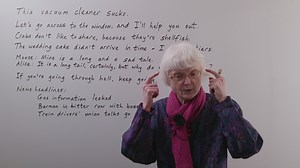 This vacuum cleaner sucks.
Let's go across to the window, and I'll help you out.
Crabs don't like to share, because they're shellfish.
The wedding cake didn't arrive in time - I
Mouse: Mine is a long and a sad tale.
Alice: It is a long tail, certainly, but why do
If you're going through hell, keep
News headlines:
Gas information leaked
Barman in bitter row with
Train drivers' union talks